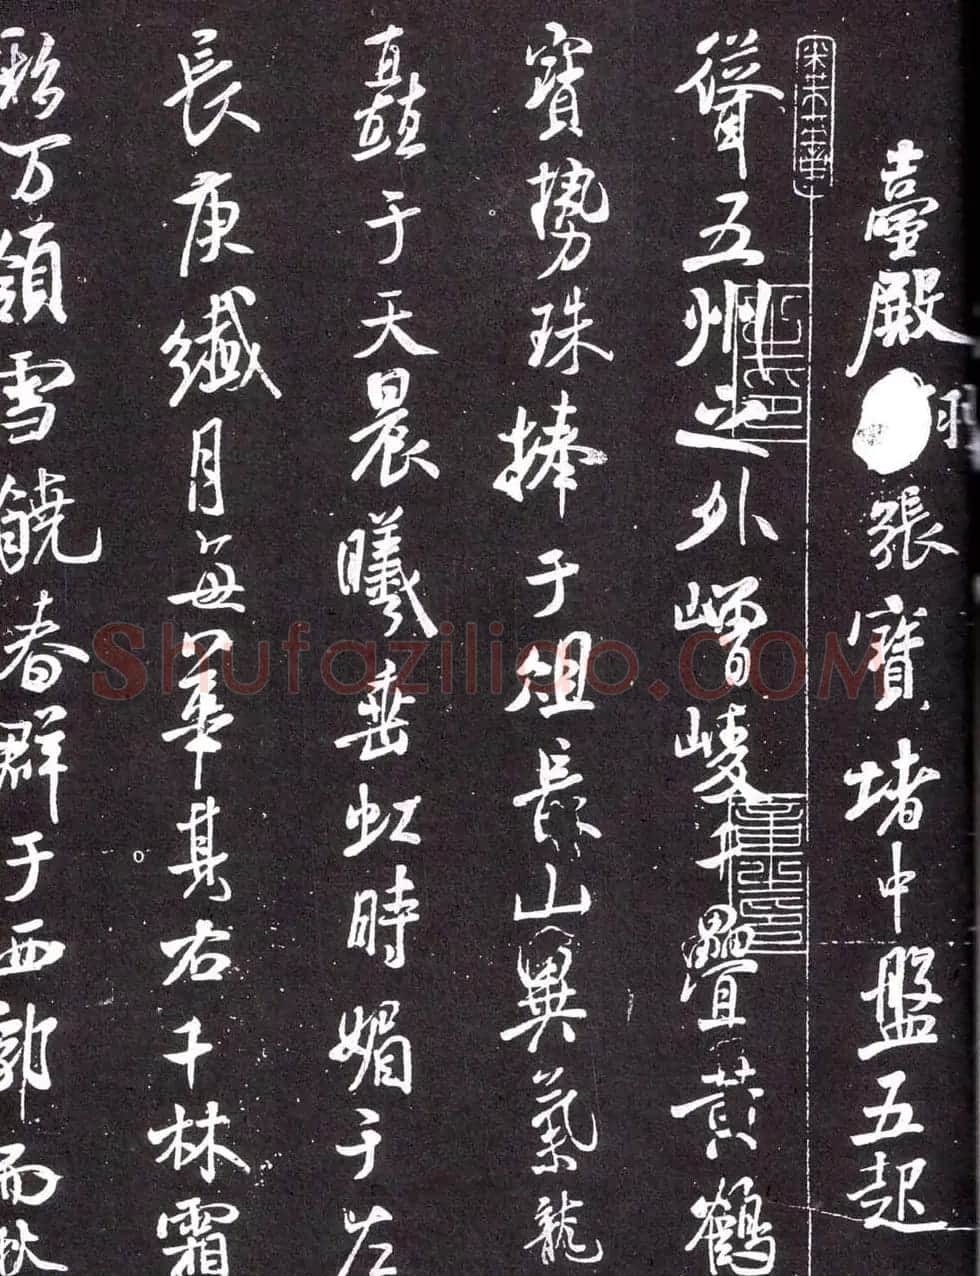 臺殿羽張寶堵中盤五起
聳五州之外嶒崚千疊黃鶴
寶勢珠捧于俎長山異氣龍
矗于天晨曦垂虹時媚于左
長庚纖月每華其右千林霜
彩万嶺雪饒春群于西郭而秋
Shufaziliao.COM